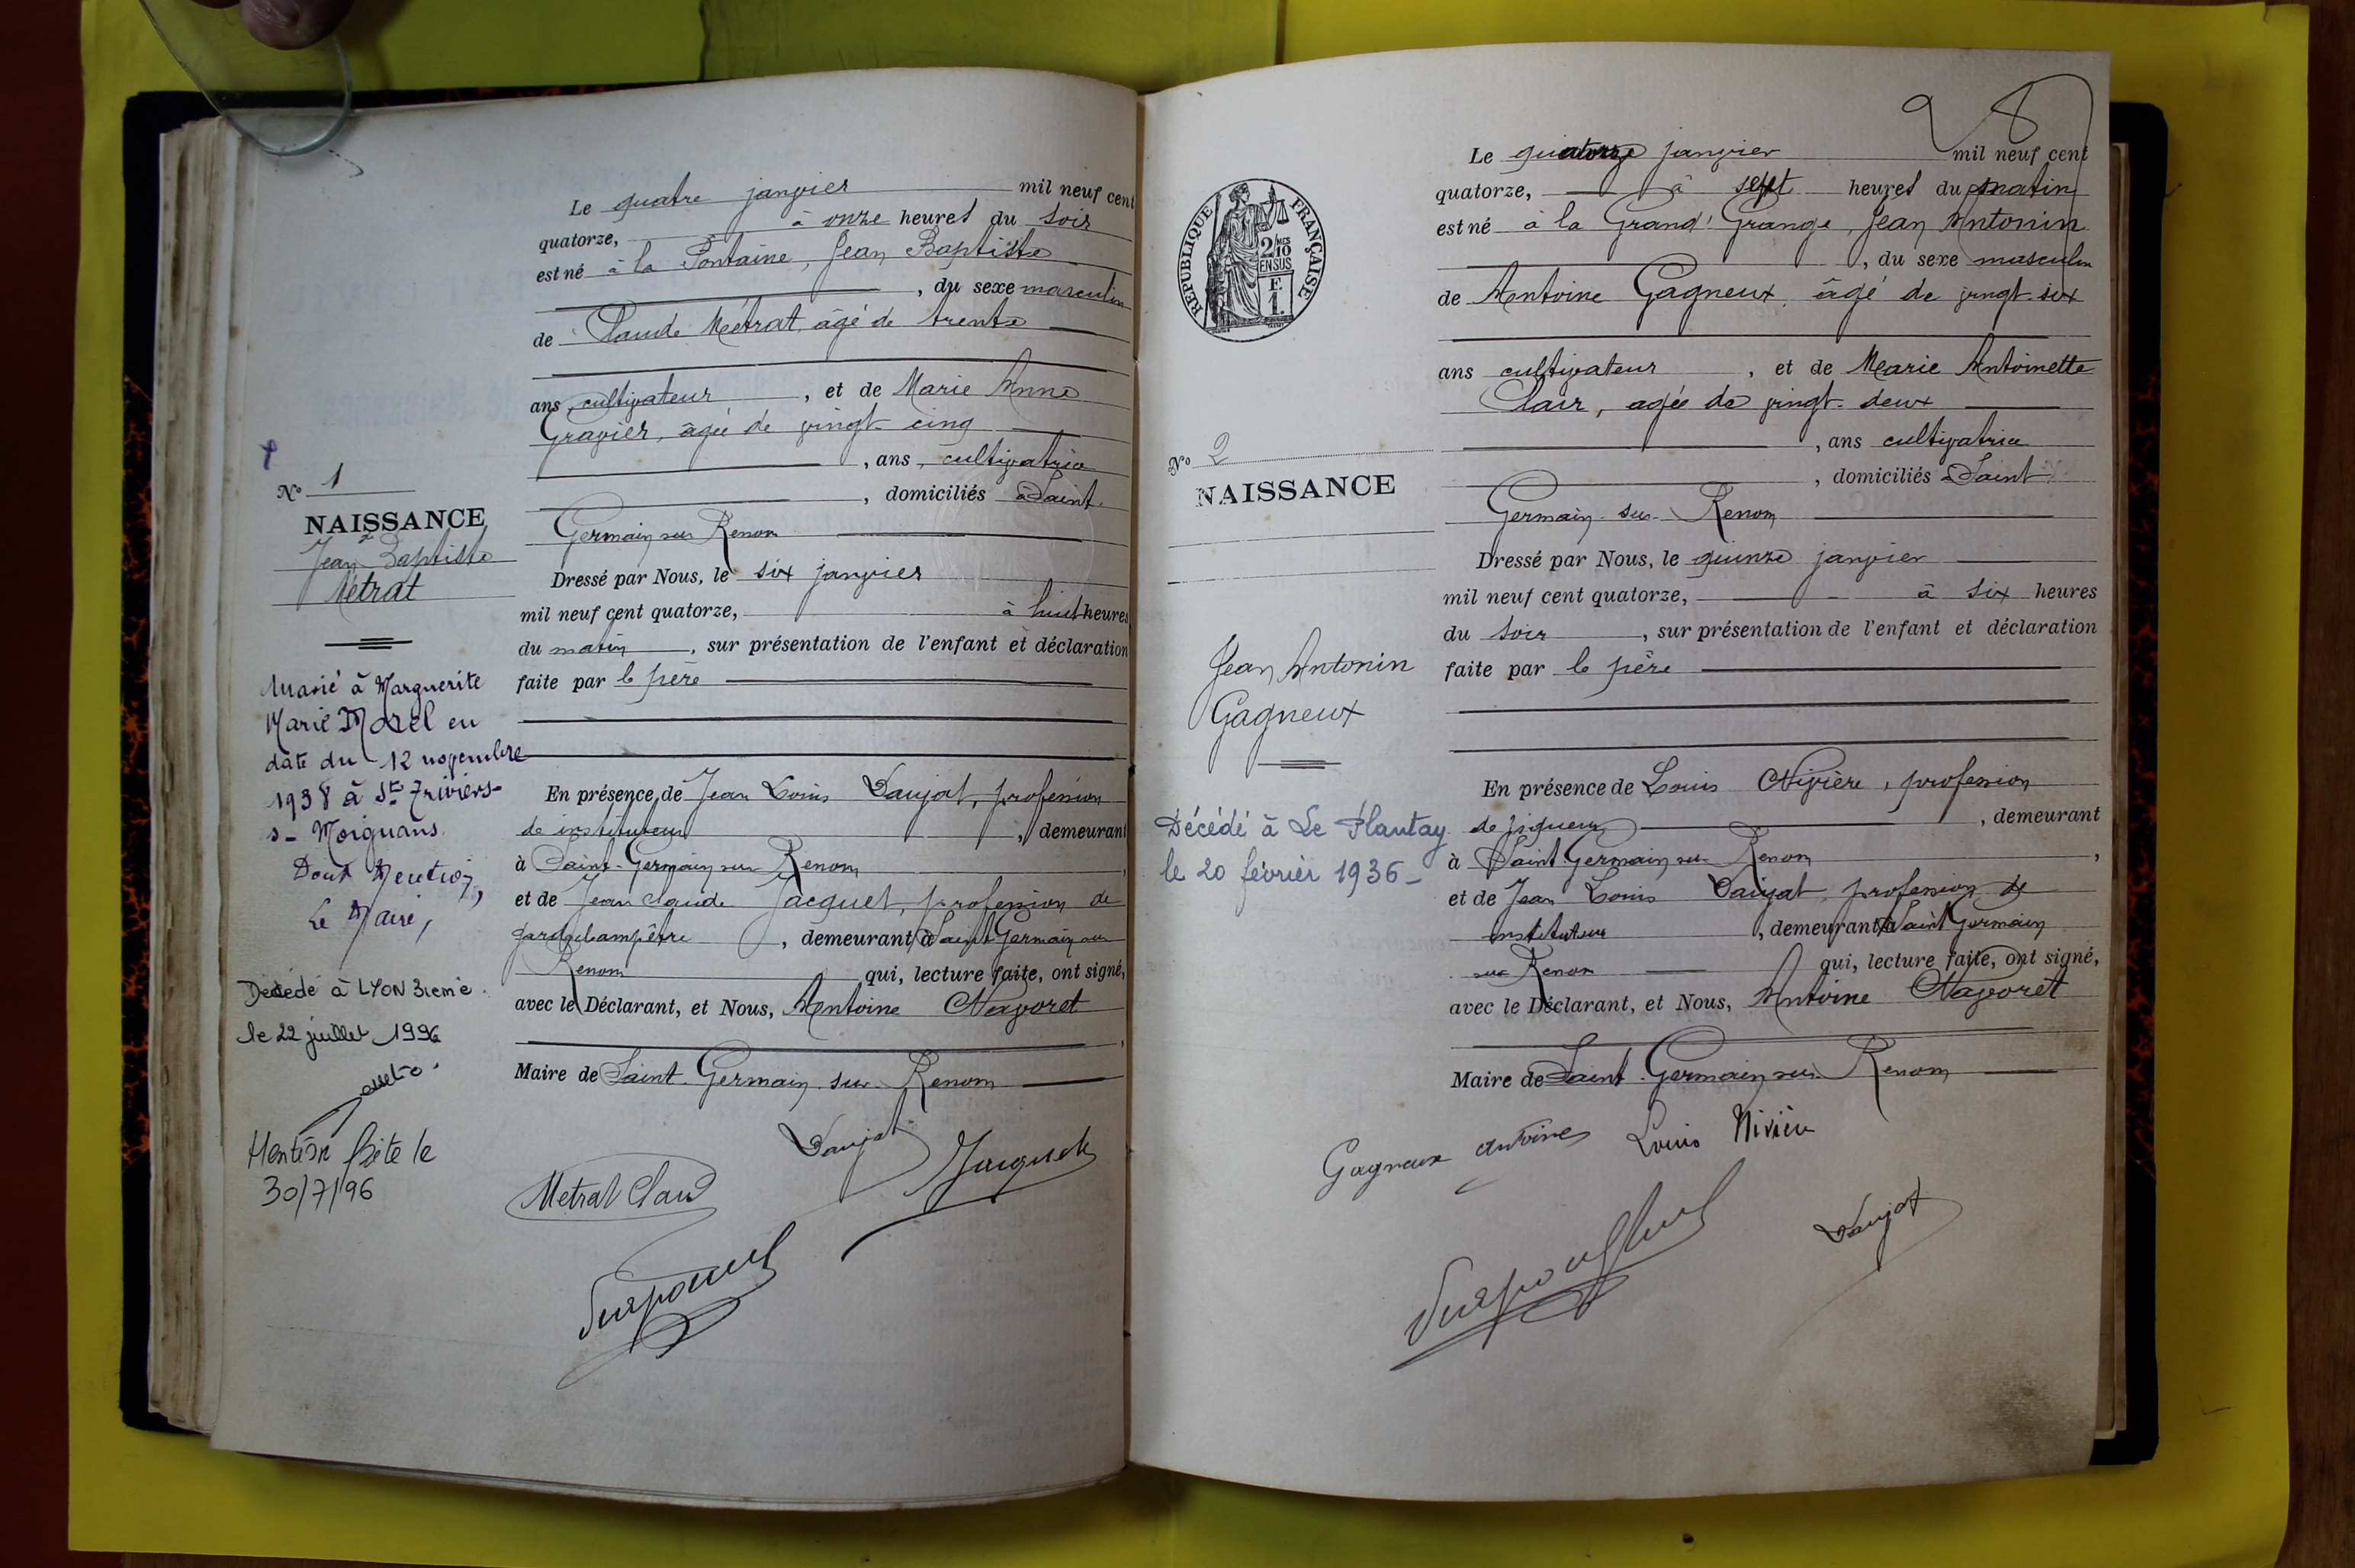 Le quatre janvier mil neuf cent
quatorze, à onze heures du soir
est né à la Fontaine, Jean Baptiste
, du sexe masculin
de Claude Métrat, âgé de trente
ans, cultivateur, et de Marie Anne
Gravier, âgée de vingt-cinq
, ans, cultivatrice
, domiciliés à Saint
Germain sur Renom
Dressé par Nous, le six janvier
mil neuf cent quatorze, à huit heures
du matin, sur présentation de l'enfant et déclaration
faite par le père
En présence de Jean Louis Daujat, profession
de instituteur, demeurant
à Saint-Germain sur Renom,
et de Jean Claude Jacquet, profession de
garde champêtre, demeurant à Saint Germain sur
Renom qui, lecture faite, ont signé,
avec le Déclarant, et Nous, Antoine Nayoret
,
Maire de Saint-Germain-sur-Renom
Daujat
Jacquet
Metrat Clau
N° 1
NAISSANCE
Jean Baptiste
Métrat
Marié à Marguerite
Marie Morel en
date du 12 novembre
1938 à St Triviers-
s-Moignans
Dont Mention,
Le Maire,
Décédé à LYON 3ième
le 22 juillet 1996
Mention faite le
30/7/96
28
Le quatorze janvier mil neuf cent
quatorze, à sept heures du matin
est né à la Grand'Grange, Jean Antonin
, du sexe masculin
de Antoine Gagneux, âgé de vingt-six
ans cultivateur, et de Marie Antoinette
Clair, agée de vingt-deux
, ans cultivatrice
, domiciliés Saint
Germain-sur-Renom
Dressé par Nous, le quinze janvier
mil neuf cent quatorze, à six heures
du soir, sur présentation de l'enfant et déclaration
faite par le père
En présence de Louis Nivière, profession
de, demeurant
à Saint Germain sur Renom,
et de Jean Louis Daujat, profession de
instituteur, demeurant à Saint Germain
sur Renom qui, lecture faite, ont signé,
avec le Déclarant, et Nous, Antoine Nayoret
Maire de Saint-Germain sur Renom
Gagneux antoine
Louis Nivière
Daujat
RÉPUBLIQUE FRANÇAISE
2 MES
10
EN SUS
F.
1.
N° 2
NAISSANCE
Jean Antonin
Gagneux
Décédé à Le Plantay
le 20 février 1936-